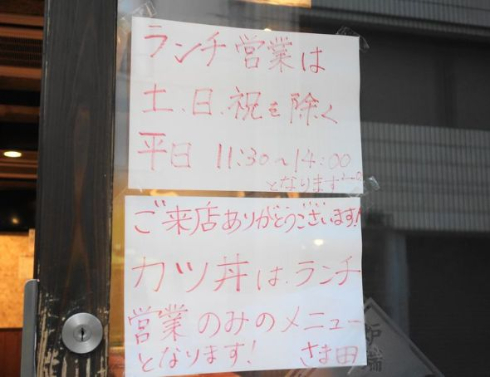 ランチ営業は
土、日、祝を除く
平日 11:30～14:00
となります
ご来店ありがとうございます!
カツ丼は、ランチ
営業のみのメニュー
となります! さま田